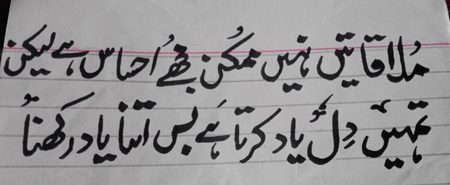 مُلاقاتیں نہیں ممکن مجھے اُحساس ہے لیکن
تمہیں دِل یاد کرتا ہَے بس اتنا یاد رکھنا